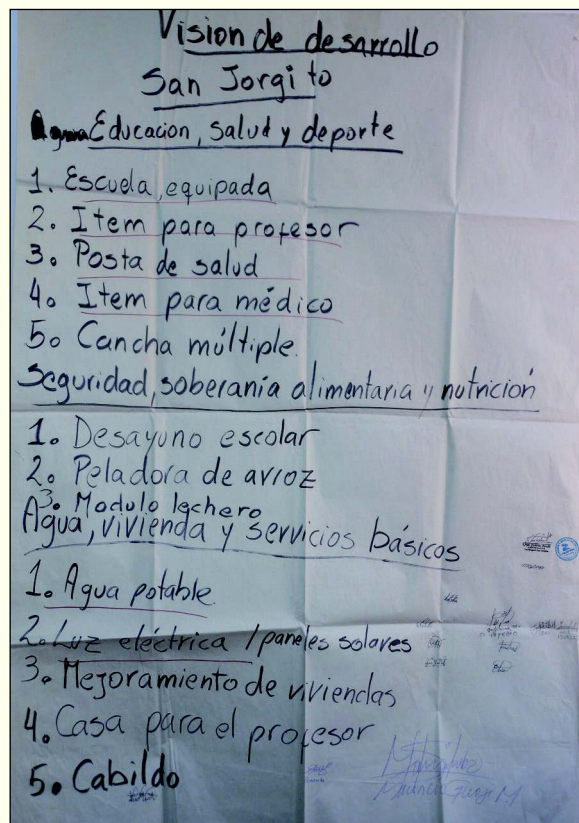 Vision de desarrollo
San Jorgito
Educacion, salud y deporte
1. Escuela, equipada
2. Item para profesor
3. Posta de salud
4. Item para médico
5. Cancha múltiple.
Seguridad, soberanía alimentaria y nutrición
1. Desayuno escolar
2. Peladora de arroz
3. Modulo lechero
Agua, vivienda y servicios básicos
1. Agua potable
2. Luz eléctrica / paneles solares
3. Mejoramiento de viviendas
4. Casa para el profesor
5. Cabildo